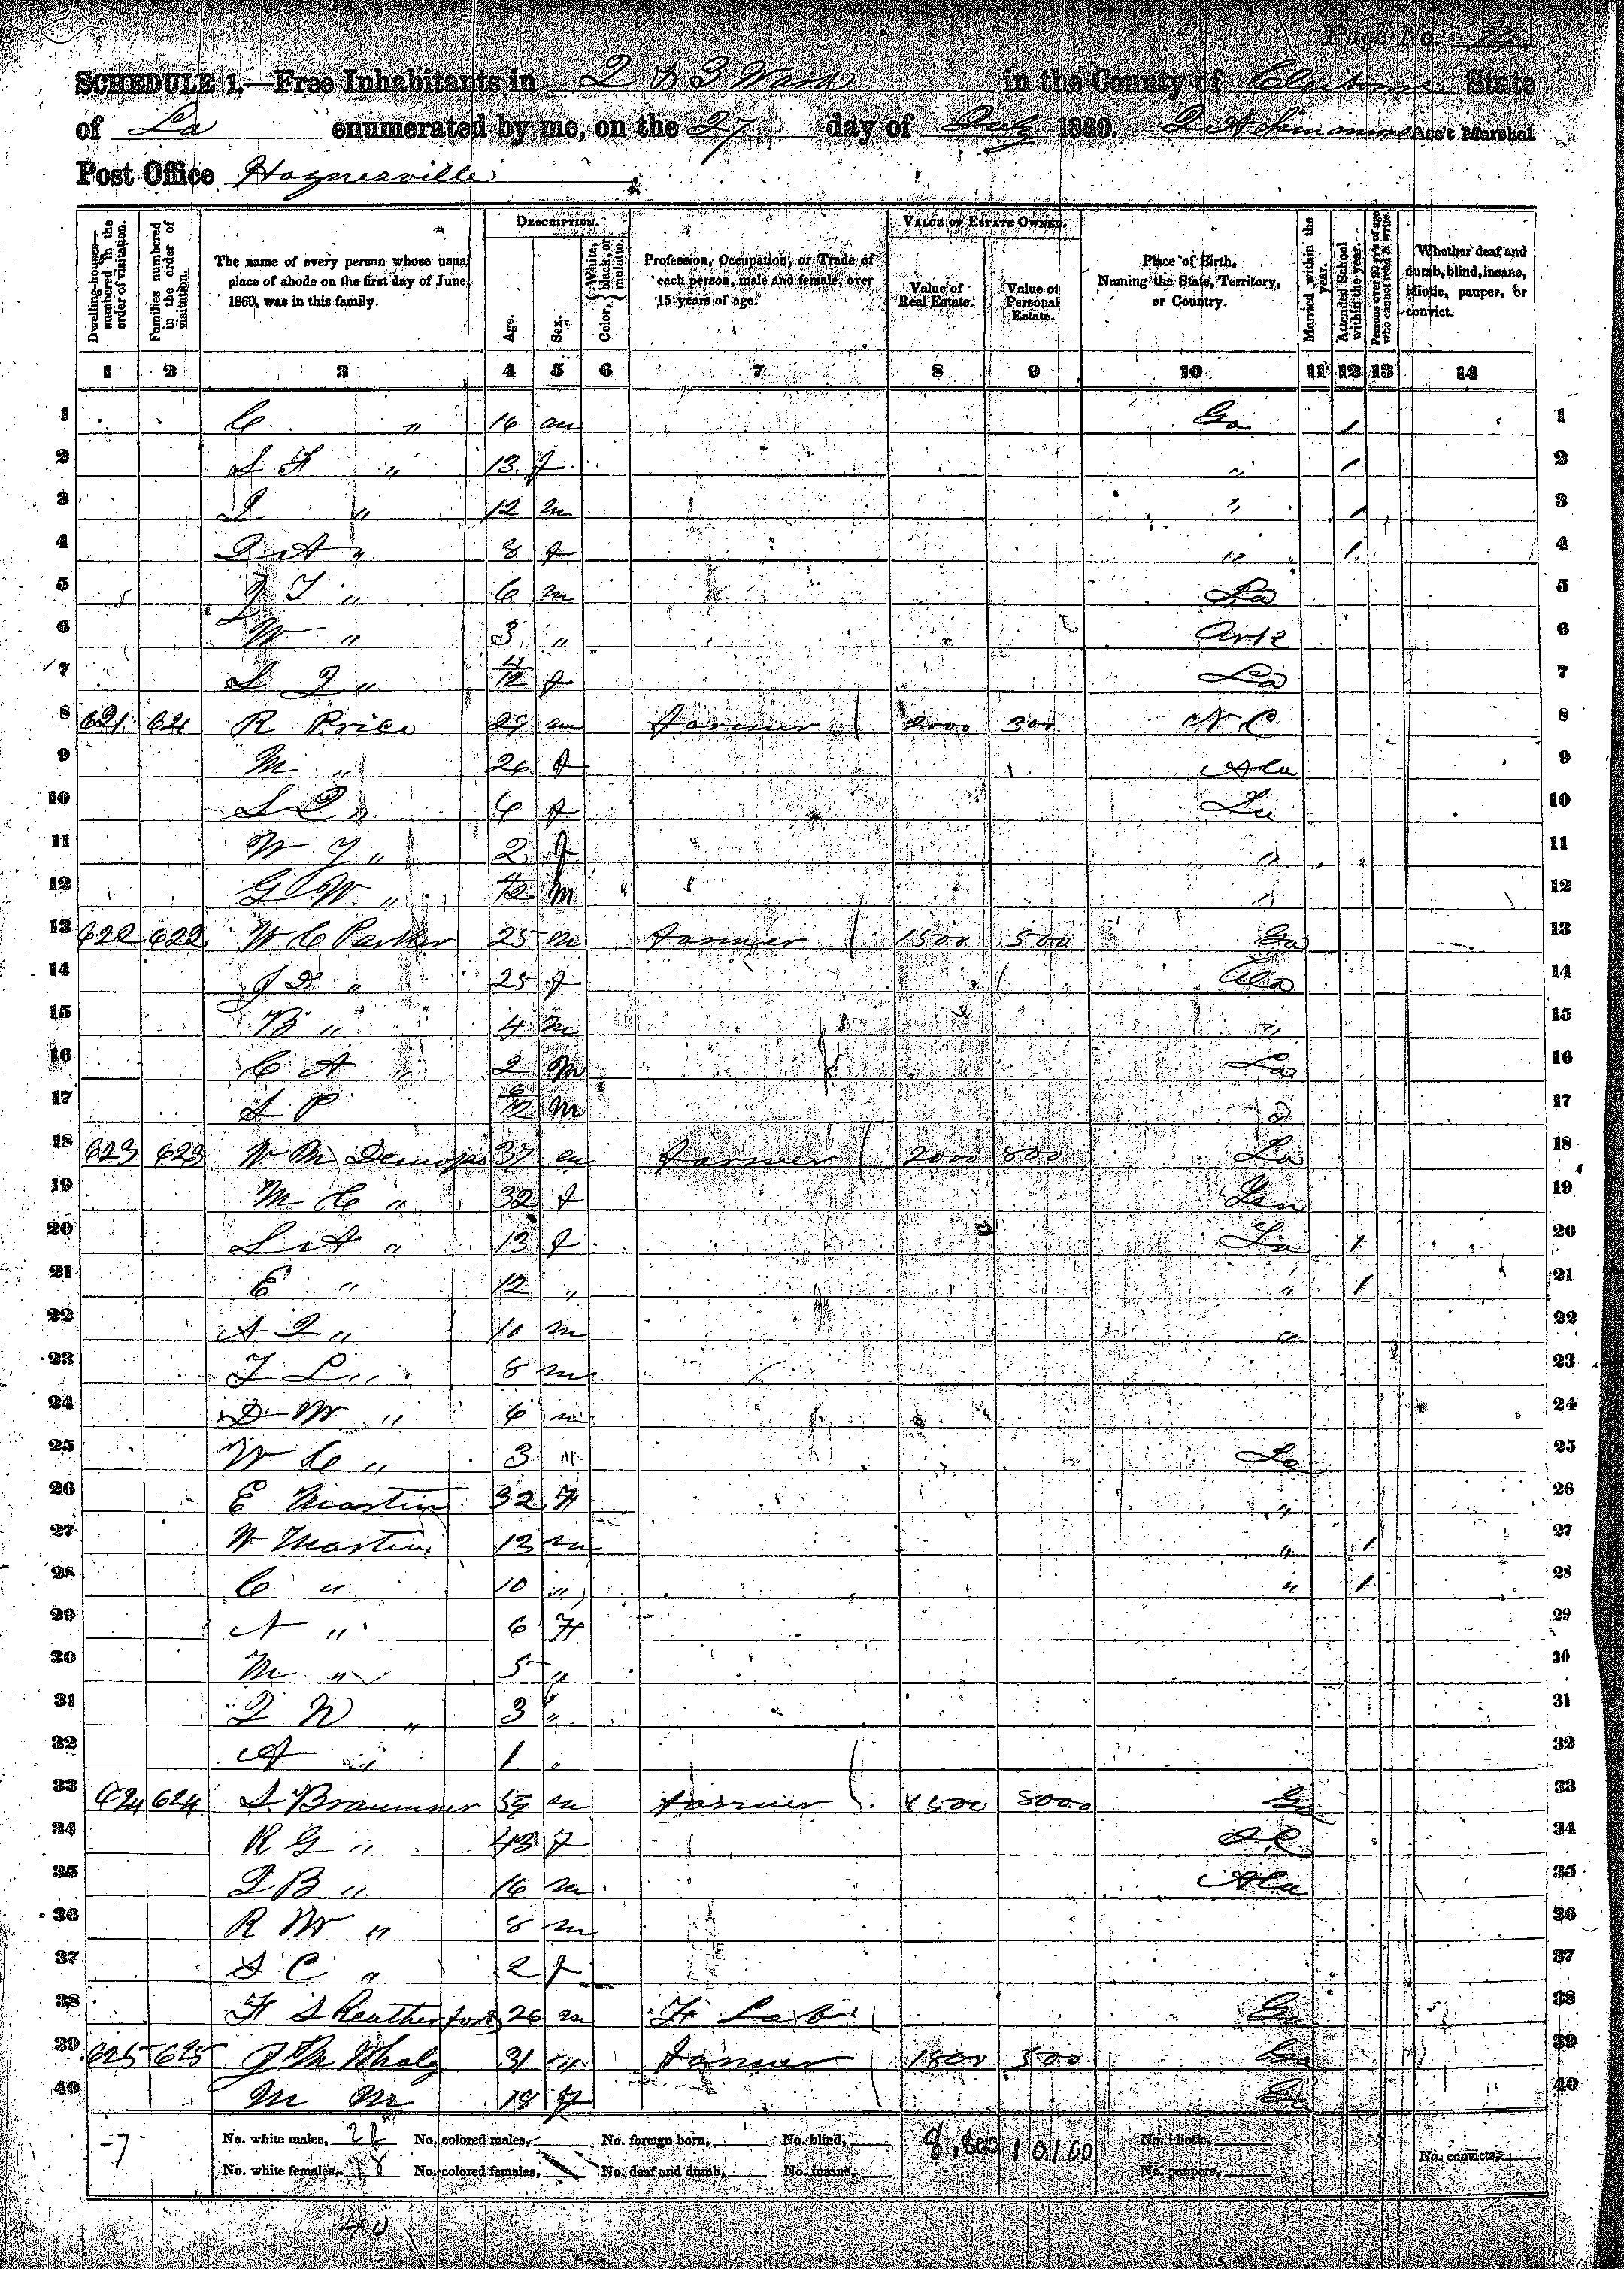 Page No. 
SCHEDULE 1.—Free Inhabitants in 2 & 3 Ward in the County of Claiborne State
of La enumerated by me, on the 27 day of July 1860. Ass't Marshal
Post Office Haynesville
Dwelling-houses—numbered in the order of visitation.
Families numbered in the order of visitation.
The name of every person whose usual place of abode on the first day of June, 1860, was in this family.
DESCRIPTION.
Age.
Sex.
Color, White, black, or mulatto.
Profession, Occupation, or Trade of each person, male and female, over 15 years of age.
VALUE OF ESTATE OWNED.
Value of Real Estate.
Value of Personal Estate.
Place of Birth, Naming the State, Territory, or Country.
Married within the year.
Attended School within the year.
Persons over 20 y'rs of age who cannot read & write.
Whether deaf and dumb, blind, insane, idiotic, pauper, or convict.
1 2 3 4 5 6 7 8 9 10 11 12 13 14
1 C " 16 m Ga / 1
2 S F " 13 f " / 2
3 " 12 m " / 3
4 A " 8 f " / 4
5 J T " 6 m La 5
6 M " 3 " Ark 6
7 " 4/12 f La 7
8 621 621 R Price 29 m Farmer 2000 300 N C 8
9 M " 26 f Ala 9
10 " 4 f La 10
11 W J " 2 f " 11
12 G W " /12 m " 12
13 622 622 W C Parker 25 m Farmer 1500 500 Ga 13
14 J D " 25 f Ala 14
15 B " 4 m " 15
16 C A " 2 m La 16
17 S P 6/12 m " 17
18 623 623 W M 37 m Farmer 2000 800 La 18
19 M C " 32 f Ten 19
20 S A " 13 f La / 20
21 E " 12 " " / 21
22 A J " 10 m " 22
23 T L " 8 m 23
24 D M " 6 m 24
25 W C " 3 " La 25
26 E Martin 32 F " 26
27 W Martin 13 m " / 27
28 C " 10 " " / 28
29 A " 6 F 29
30 M " 5 " 30
31 N " 3 " 31
32 A " 1 " 32
33 624 624 S m Farmer 8000 Ga 33
34 R G " 43 f S C 34
35 J B " 16 m Ala 35
36 R W " 8 m 36
37 S C " 2 f 37
38 F S Reutherford 26 m F Lab Ga 38
39 625 625 J M 31 m Farmer 1800 500 Ga 39
40 M M 18 f Ga 40
-7 No. white males, 22 No. colored males, No. foreign born, No. blind, 8,800 10,100 No. idiotic, No. convicts,
No. white females, 18 No. colored females, No. deaf and dumb, No. insane, No. paupers,
40